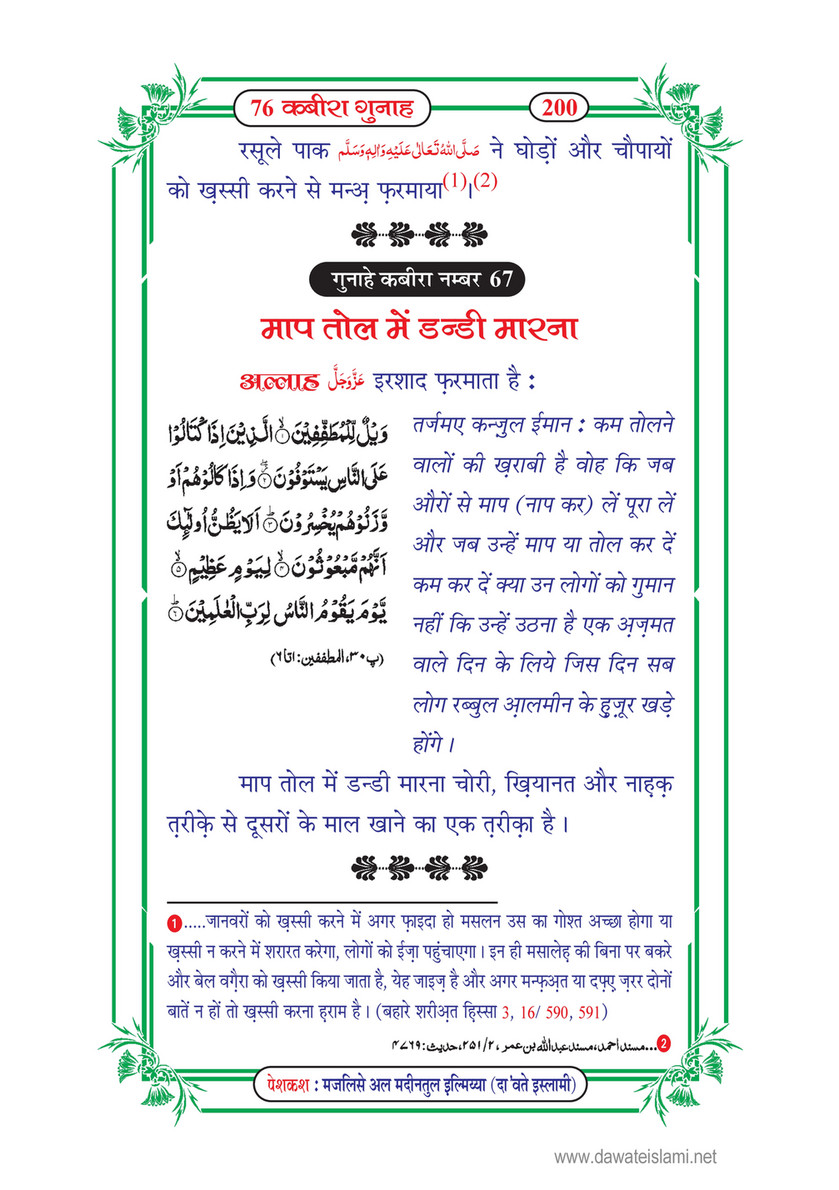 76 कबीरा गुनाह
200
रसूले पाक صَلَّى اللهُ تَعَالٰى عَلَيْهِ وَاٰلِهٖ وَسَلَّم ने घोड़ों और चौपायों
को ख़स्सी करने से मन्अ़ फ़रमाया(1)।(2)
गुनाहे कबीरा नम्बर 67
माप तोल में डन्डी मारना
अल्लाह عَزَّوَجَلَّ इरशाद फ़रमाता है :
وَيْلٌ لِّلْمُطَفِّفِيْنَ ۙ﴿۱﴾ الَّذِيْنَ اِذَا كْتَالُوْا
عَلَى النَّاسِ يَسْتَوْفُوْنَ ۫ۖ﴿۲﴾ وَ اِذَا كَالُوْهُمْ اَوْ
وَّزَنُوْهُمْ يُخْسِرُوْنَ ؕ﴿۳﴾ اَلَا يَظُنُّ اُولٰٓئِكَ
اَنَّهُمْ مَّبْعُوْثُوْنَ ۙ﴿۴﴾ لِيَوْمٍ عَظِيْمٍ ۙ﴿۵﴾
يَّوْمَ يَقُوْمُ النَّاسُ لِرَبِّ الْعٰلَمِيْنَ ؕ﴿۶﴾
(پ۳۰، المطففین: ۱تا۶)
तर्जमए कन्ज़ुल ईमान : कम तोलने
वालों की ख़राबी है वोह कि जब
औरों से माप (नाप कर) लें पूरा लें
और जब उन्हें माप या तोल कर दें
कम कर दें क्या उन लोगों को गुमान
नहीं कि उन्हें उठना है एक अ़ज़मत
वाले दिन के लिये जिस दिन सब
लोग रब्बुल आ़लमीन के हुज़ूर खड़े
होंगे ।
माप तोल में डन्डी मारना चोरी, ख़ियानत और नाह़क़
त़रीक़े से दूसरों के माल खाने का एक त़रीक़ा है ।
1.....जानवरों को ख़स्सी करने में अगर फ़ाइदा हो मसलन उस का गोश्त अच्छा होगा या
ख़स्सी न करने में शरारत करेगा, लोगों को ईज़ा पहुंचाएगा । इन ही मसालेह़ की बिना पर बकरे
और बेल वग़ैरा को ख़स्सी किया जाता है, येह जाइज़ है और अगर मन्फ़अ़त या दफ़्ए़ ज़रर दोनों
बातें न हों तो ख़स्सी करना ह़राम है । (बहारे शरीअ़त ह़िस्सा 3, 16/ 590, 591)
2...مسند احمد، مسند عبد الله بن عمر، ۲/۲۵۱، حدیث: ۴۷۶۹
पेशकश : मजलिसे अल मदीनतुल इल्मिय्या (दा'वते इस्लामी)
www.dawateislami.net